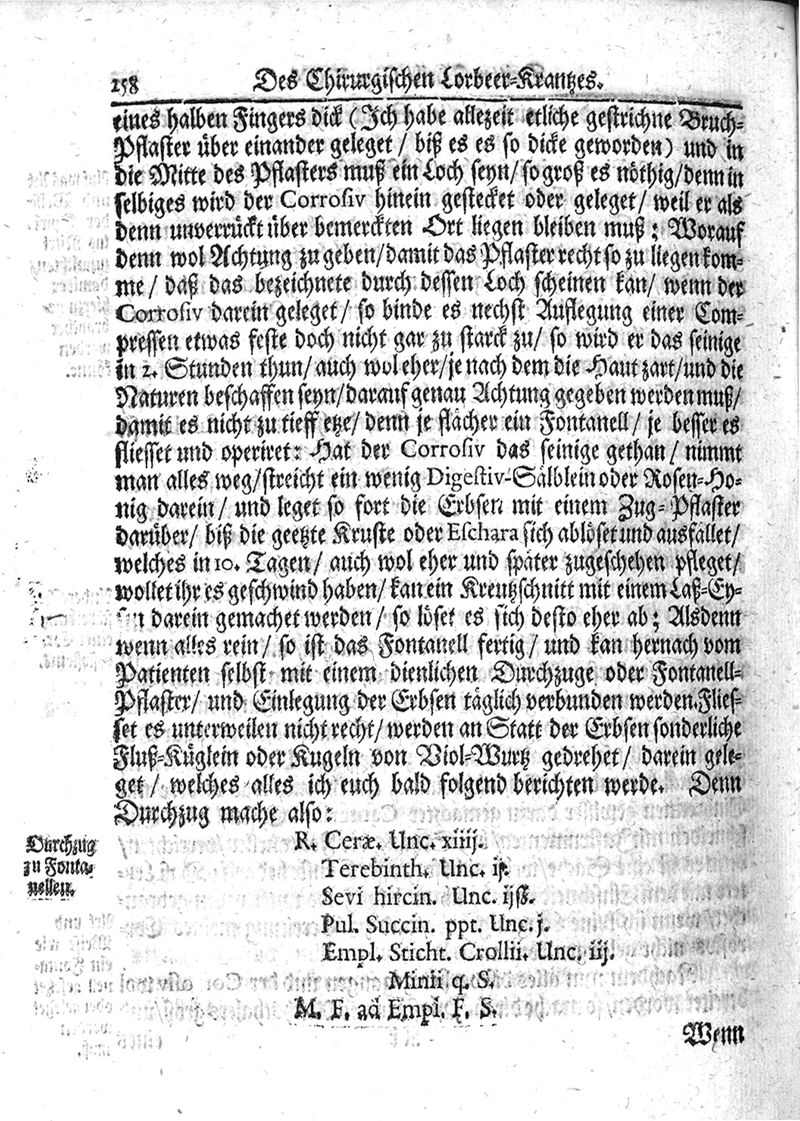 258 Des Chirurgischen Lorbeer-Krantzes.
eines halben Fingers dick (Ich habe allezeit etliche gestrichne Bruch-
Pflaster über einander geleget / biß es es so dicke geworden) und in
die Mitte des Pflasters muß ein Loch seyn/ so groß es nöthig/ denn in
selbiges wird der Corrosiv hinein gestecket oder geleget/ weil er als
denn unverrückt über bemerckten Ort liegen bleiben muß; Worauf
denn wol Achtung zu geben/ damit das Pflaster recht so zu liegen kom-
me/ daß das bezeichnete durch dessen Loch scheinen kan/ wenn der
Corrosiv darein geleget/ so binde es nechst Auflegung einer Com-
pressen etwas feste doch nicht gar zu starck zu/ so wird er das seinige
in 2. Stunden thun/ auch wol eher/ je nach dem die Haut zart/ und die
Naturen beschaffen seyn/ darauf genau Achtung gegeben werden muß/
damit es nicht zu tieff etze/ denn je flächer ein Fontanell/ je besser es
fliesset und operiret: Hat der Corrosiv das seinige gethan/ nimmt
man alles weg/ streicht ein wenig Digestiv-Sälblein oder Rosen-Ho-
nig darein/ und leget so fort die Erbsen mit einem Zug-Pflaster
darüber/ biß die geetzte Kruste oder Eschara sich ablöset und ausfället/
welches in 10. Tagen/ auch wol eher und später zugeschehen pfleget/
wollet ihr es geschwind haben/ kan ein Kreutzschnitt mit einem Laß-Ey-
sen darein gemachet werden/ so löset es sich desto eher ab; Alsdenn
wenn alles rein/ so ist das Fontanell fertig/ und kan hernach vom
Patienten selbst mit einem dienlichen Durchzuge oder Fontanell-
Pflaster/ und Einlegung der Erbsen täglich verbunden werden. Flies-
set es unterweilen nicht recht/ werden an Statt der Erbsen sonderliche
Fluß-Küglein oder Kugeln von Viol-Wurtz gedrehet/ darein gele-
get/ welches alles ich euch bald folgend berichten werde. Denn
Durchzug mache also:
Durchzug
zu Fonta-
nellen.
R. Ceræ. Unc. xiiij.
Terebinth. Unc. iß.
Sevi hircin. Unc. ijß.
Pul. Succin. ppt. Unc. j.
Empl. Sticht. Crollii. Unc. iij.
Minii q. S.
M. F. ad Empl. F. S.
Wenn